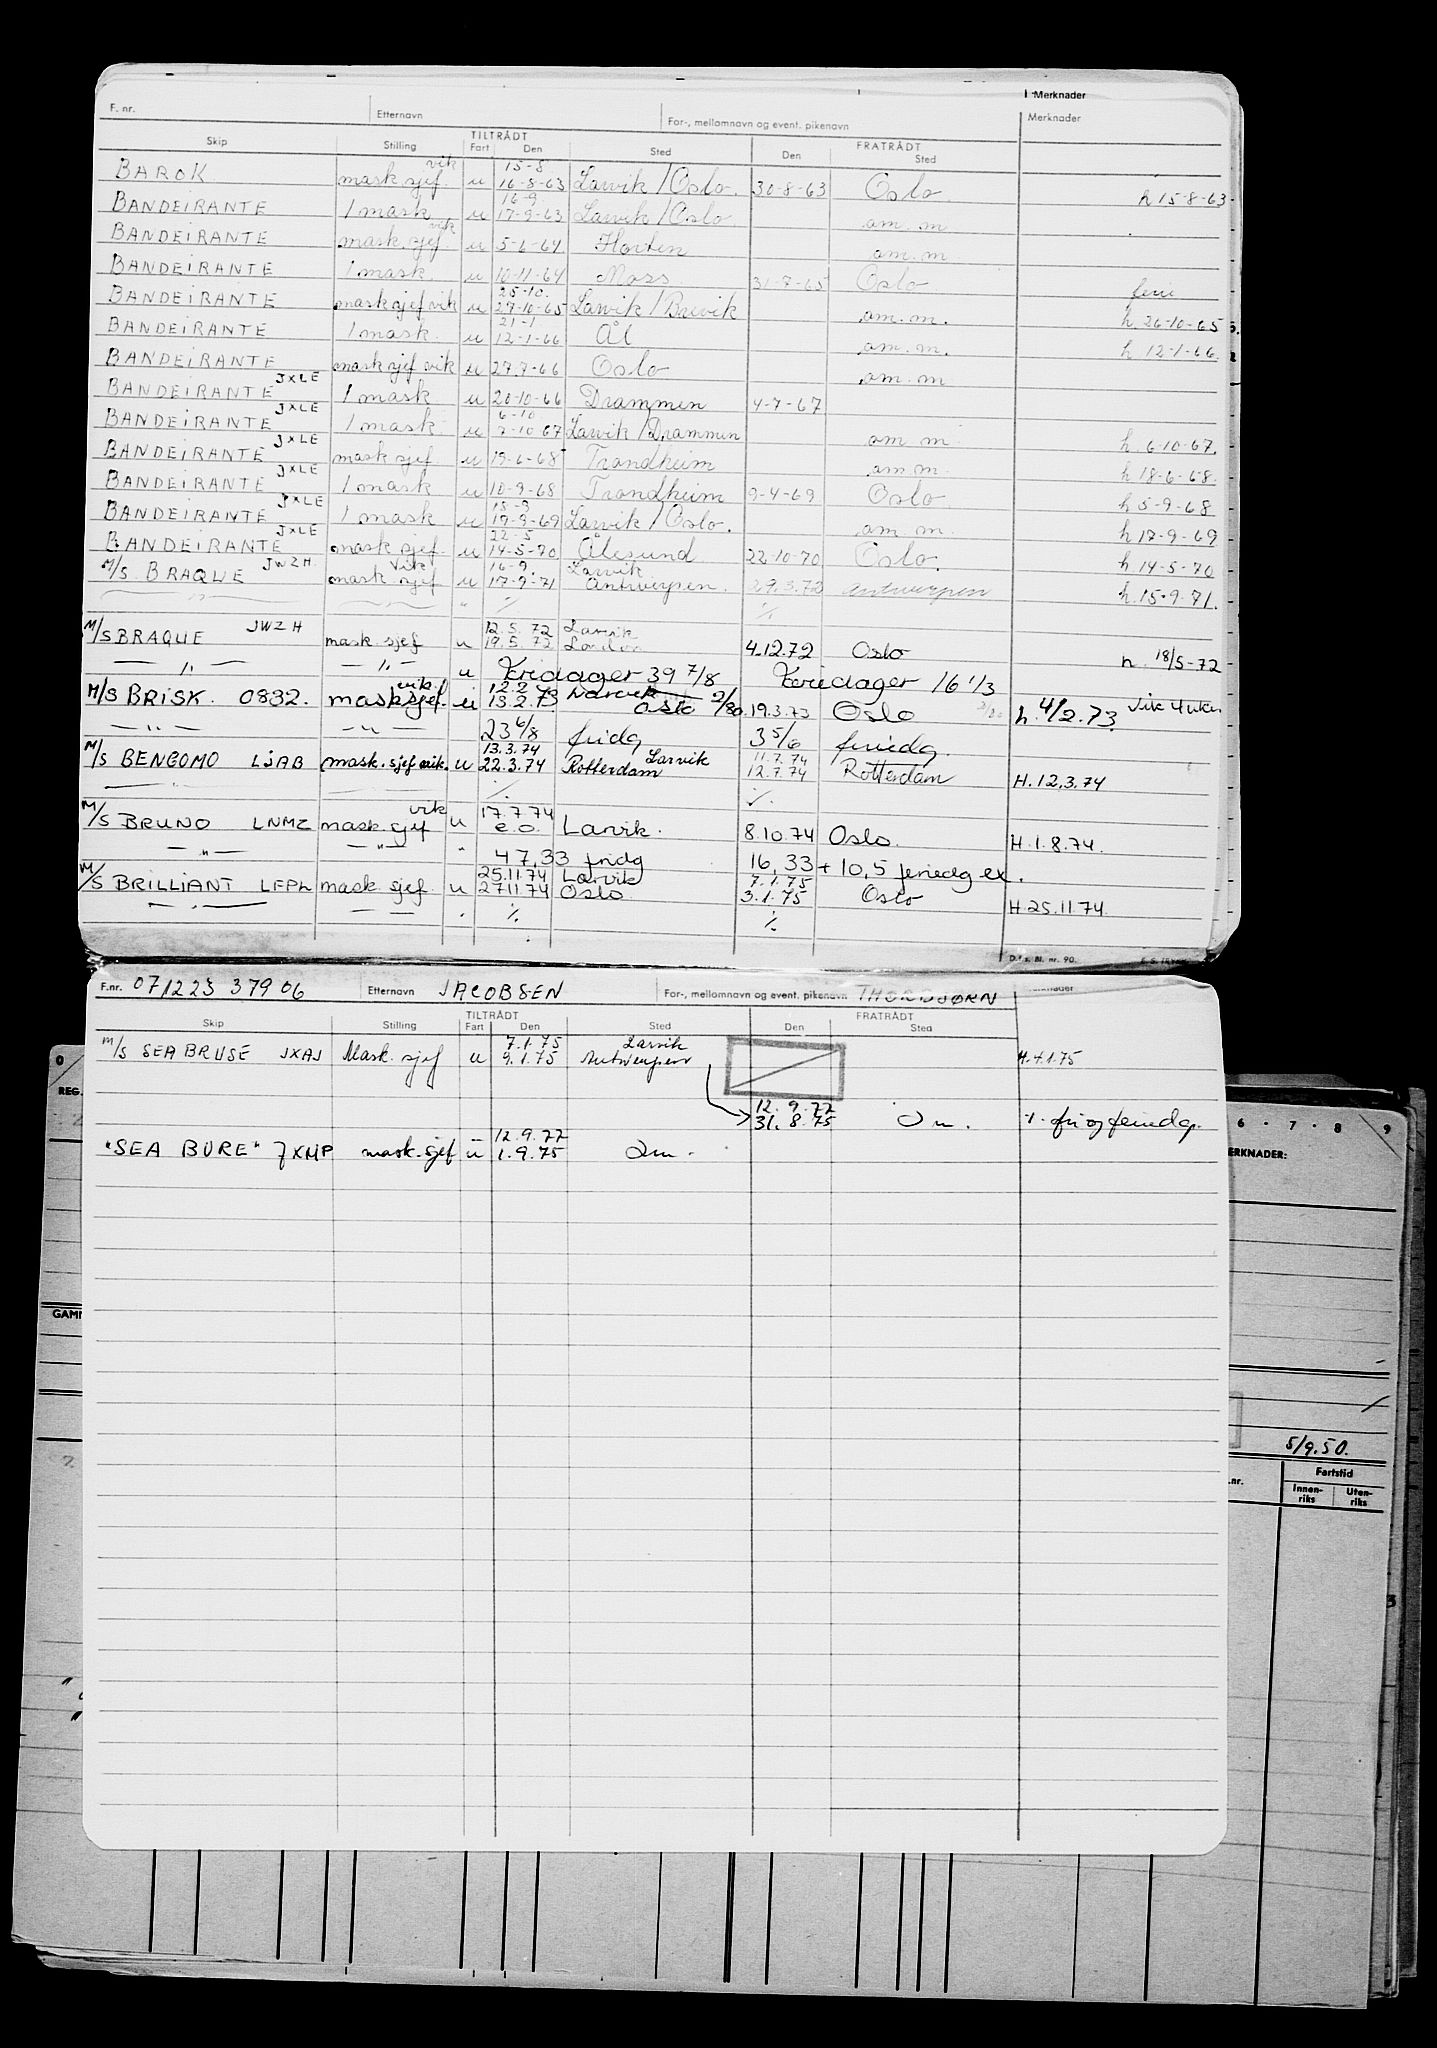 Merknader
F. nr. Etternavn For-, mellomnavn og event. pikenavn Merknader
TILTRÅDT FRATRÅDT
Skip Stilling Fart Den Sted Den Sted
vik 15-8
BAROK mask sjef u 16-8-63 Larvik/Oslo. 30-8-63 Oslo h 15-8-63
16-9
BANDEIRANTE 1 mask u 17-9-63 Larvik/Oslo am. m
vik
BANDEIRANTE mask. sjef u 5-6-64 Horten am. m
BANDEIRANTE 1 mask. u 10-11-64 Moss 31-7-65 Oslo ferie
25-10.
BANDEIRANTE mask sjef vik u 27-10-65 Larvik/Brevik am. m. h 26-10-65
21-1
BANDEIRANTE 1 mask. u 12-1-66 Ål am. m. h 12-1-66.
BANDEIRANTE mask sjef vik u 27.7-66 Oslo am. m
BANDEIRANTE JXLE 1 mask u 20-10-66 Drammen 4-7-67
6-10
BANDEIRANTE JXLE 1 mask u 7-10 67 Larvik/Drammen am m. h 6-10-67.
BANDEIRANTE JXLE mask sjef u 19-6-68 Trondheim am m. h 18-6-68.
BANDEIRANTE JXLE 1 mask u 10-9-68 Trondheim 9-4-69 Oslo h 5-9-68
18-9
BANDEIRANTE JXLE 1 mask u 19-9-69 Larvik/Oslo. am m h 17-9-69
22-5
BANDEIRANTE JXLE mask sjef u 14-5-70 Ålesund 22-10-70 Oslo. h 14-5-70
vik 16-9. Larvik
M/S. BRAQUE JWZH. mask. sjef u 17-9-71 Antwerpen. 29.3.72 Antwerpen h. 15.9.71.
" ./. ./.
12.5.72 Larvik
M/S BRAQUE JWZH mask. sjef u 19.5.72 London 4.12.72 Oslo h. 18/5-72
— " — — " — u Feridager 39 7/8 Feriedager 16 1/3
vik. 12.2.73 Larvik
M/S BRISK. 0832. mask sjef. u 13.2.73 Oslo 2/80 19.3.73 Oslo h. 4/2.73 vik 4 uker
— " — — " — 23 6/8 fridg 3 5/6 feriedg.
13.3.74 Larvik 11.7.74
M/S BENGOMO LJAB mask. sjef vik. u 22.3.74 Rotterdam 12.7.74 Rotterdam H.12.3.74
./. ./.
vik 17.7.74
M/S BRUNO LNMZ mask. sjef u e.o. Larvik. 8.10.74 Oslo. H.1.8.74.
— " — — " — " 47,33 fridg 16,33 + 10,5 feriedg ex.
25.11.74 Larvik 7.1.75
M/S BRILLIANT LEPL mask. sjef u 27.11.74 Oslo 3.1.75 Oslo H.25.11.74.
— " — ./. ./.
D.f.s. Bl. nr. 90.
F.nr. 071223 37906 Etternavn JACOBSEN For-, mellomnavn og event. pikenavn THORBJØRN Merknader
TILTRÅDT FRATRÅDT
Skip Stilling Fart Den Sted Den Sted
7.1.75 Larvik
M/S SEA BRUSE JXAJ Mask. sjef u 9.1.75 Antwerpen H.4.1.75
12.9.77
31.8.75 Om. ./. fri og feriedg.
12.9.77
"SEA BURE" JXMP mask. sjef u 1.9.75 Om.
0
REG.
GAM
6 · 7 · 8 9
ERKNADER:
5/9.50.
.nr. Fartstid
Innen-riks Uten-riks